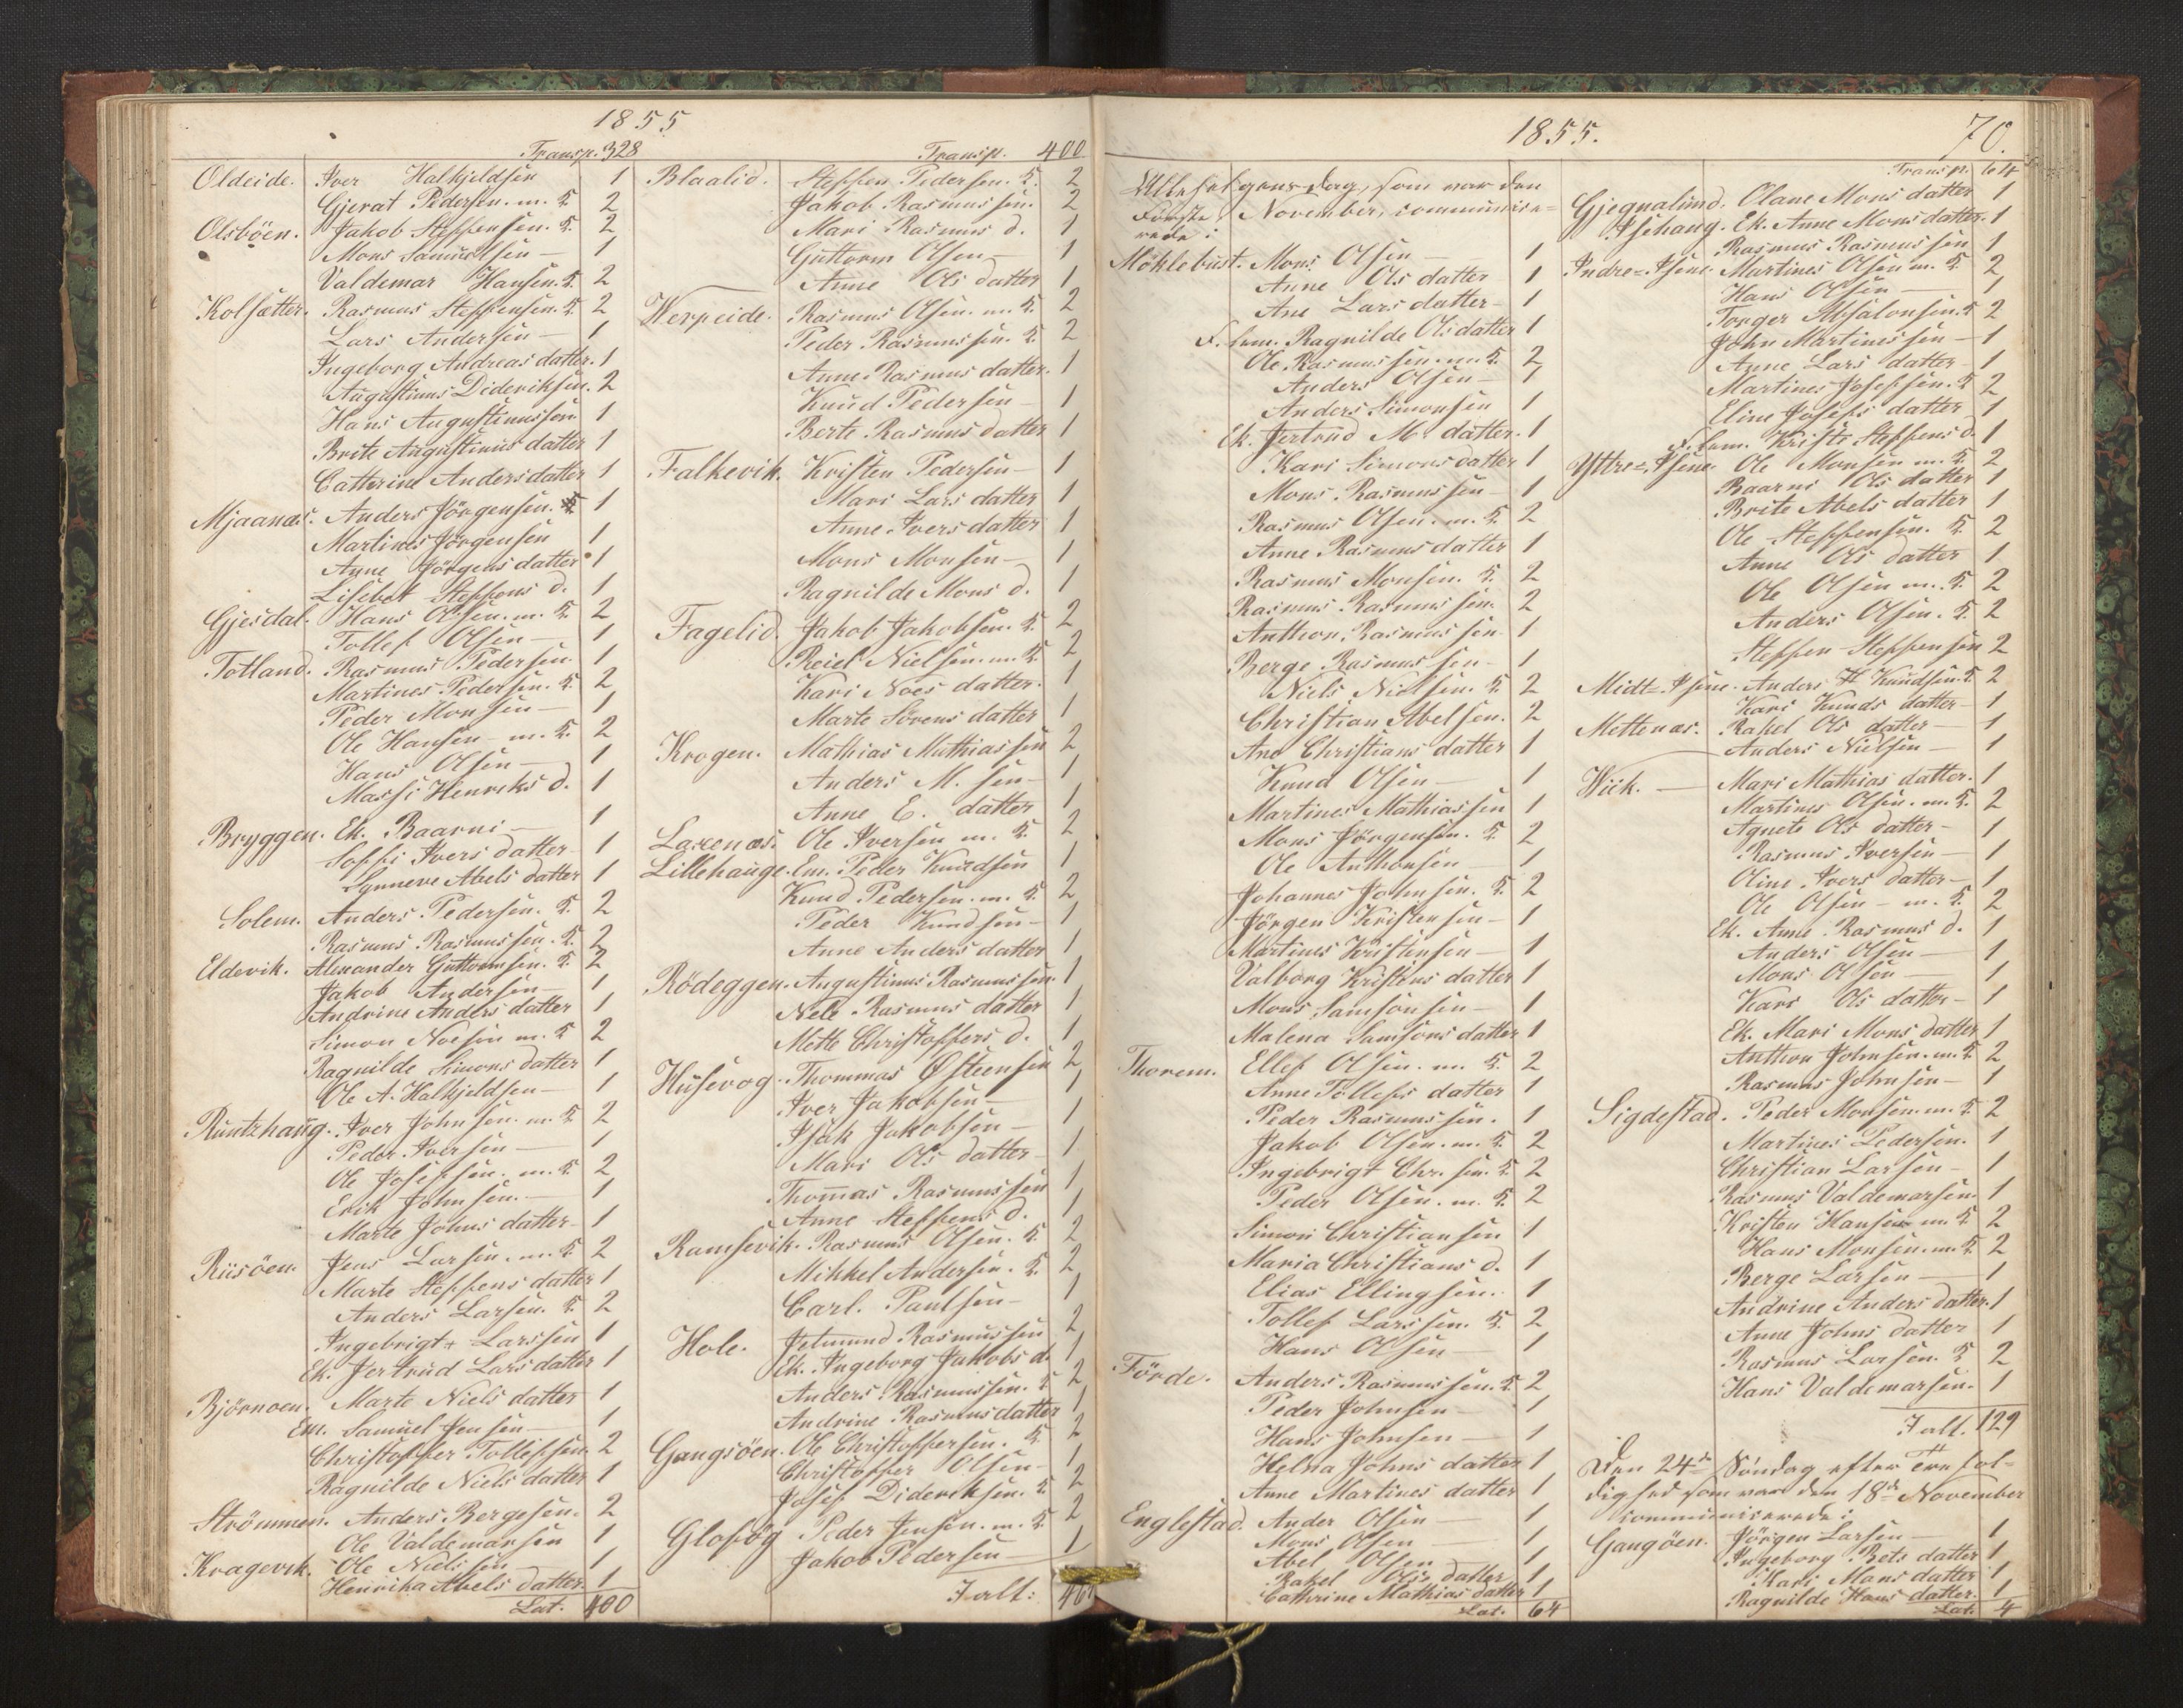 1855
Transp. 328
Oldeide. Iver Halkjeldsen 1
Gjerat Pedersen. m. K. 2
Olsböen. Jakob Steffensen. K. 2
Mons Samuelsen — 1
Valdemar Hansen. K. 2
Kolsætter. Rasmus Steffensen. K. 2
Lars Andersen — 1
Ingeborg Andreas datter. 1
Augustinus Dideriksen. 2
Hans Augustinussön 1
Brite Augustinus datter 1
Catterine Anders datter 1
Mjaanæs. Anders Jörgensen. 1
Martines Jörgensen 1
Anne Jörgens datter 1
Lisebet Steffens d. 1
Gjesdal. Hans Olsen. m. K. 2
Tollef Olsen — 1
Totland. Rasmus Pedersen. 1
Martines Pedersen. K. 2
Peder Monsen — 1
Ole Hansen — m. K. 2
Hans Olsen — 1
Massi Henriks d. 1
Bryggen. Ek. Baarni — 1
Soffi Ivers datter — 1
Synneve Abels datter 1
Solem. Anders Pedersen. K. 2
Rasmus Rasmussen. K. 2
Eldevik. Alexander Guttormsen. K. 2
Jakob Andersen — 1
Andrine Anders datter 1
Simon Noesen m. K 2
Ragnilde Simons datter 1
Ole A. Halkjeldsen — 1
Runtzhaug. Iver Johnsen. m. K 2
Peder Iversen — 1
Ole Josefsen. m. K. 2
Erik Johnsen. — 1
Marte Johns datter — 1
Riisöen. Jens Larsen. m. K. 2
Marte Steffens datter 1
Anders Larsen. K. 2
Ingebrigt Larssen 1
Ek. Jertrud Lars datter 1
Björnoen. Marte Niels datter 1
Em. Samuel Jensen — 1
Christoffer Tollefsen 2
Ragnilde Niels datter 1
Strömmen. Anders Bergesen. 2
Ole Valdemarsen 1
Kragevik. Ole Nielssen — 1
Henrika Abels datter. 1
Lat. 400
Transp. 400
Blaalid. Steffen Pedersen. K. 2
Jakob Rasmussen. 2
Mari Rasmus d. 1
Guttorm Olsen — 1
Anne Ols datter 1
Verpeide. Rasmus Olsen. m. K. 2
Peder Rasmussen. K. 2
Anne Rasmus datter. 1
Knud Pedersen — 1
Berte Rasmus datter 1
Falkevik. Kristen Pedersen — 1
Mari Lars datter 1
Anne Ivers datter 1
Mons Monsen — 1
Ragnilde Mons d. 1
Fagelid. Jakob Jakobsen. K. 2
Reiel Nielsen. m. K. 2
Kari Noes datter. 1
Marte Sörens datter 1
Krogen. Mathias Mathiassen 2
Anders M. sen — 1
Anne E. datter 1
Laxenæs. Ole Iversen m. K. 2
Lillehauge. Em. Peder Knudsen 1
Knud Pedersen. m. K. 2
Peder Knudsen — 1
Anne Anders datter 1
Rödeggen. Augustinus Rasmussen. 1
Nele Rasmus datter 1
Mette Christoffers d. 1
Husevog. Thommas Østeensen 2
Iver Jakobsen — 1
Isak Jakobsen — 1
Mari Ols datter — 1
Thomas Rasmussen 1
Anne Steffens d. 1
Ramsevik. Rasmus Olsen. K. 2
Mikkel Andersen. K. 2
Carl. Paulsen — 1
Hole. Jetmund Rasmussen 2
Ek. Ingeborg Jakobs d. 1
Anders Rasmussen. K 2
Andrine Rasmus datter 1
Gangsöen. Ole Christoffersen. K. 2
Christoffer Olsen — 1
Josef Dideriksen. K. 2
Glosög Peder Jensen. m. K. 2
Jakob Pedersen — 1
I alt:
1855.
70.
Allehelgens dag, som var den
Förste November, communise-
rede:
Möklebust. Mons Olsen — 1
Anne Ols datter 1
Ane Lars datter — 1
F. lem. Ragnilde Ols datter 1
Ole Rasmussen. m. K. 2
Anders Olsen — 1
Anders Simonsen 1
Ek. Jertrud M. datter. 1
Kari Simons datter 1
Mons Rasmussen — 1
Rasmus Olsen. m. K. 2
Anne Rasmus datter 1
Rasmus Monsen. K. 2
Rasmus Rasmussen. 2
Anthon Rasmussen 1
Berge Rasmussen — 1
Niels Nielsen. K. 2
Christian Abelsen. 2
Ane Christians datter 1
Knud Olsen — 1
Martines Mathiassen 1
Mons Jörgensen. K. 2
Ole Anthonsen — 1
Johannes Johnsen. K. 2
Jörgen Kristensen — 1
Martines Kristensen — 1
Valborg Kristens datter 1
Mons Samsonsen — 1
Malena Samsons datter 1
Thorem. Ellef Olsen. m. K. 2
Anne Tollefs datter 1
Peder Rasmussen. 1
Jakob Olsen. m. K. 2
Ingebrigt Chr. sen. K. 2
Peder Olsen. m. K. 2
Simon Christiansen 1
Maria Christians d. 1
Elias Ellingsen. 1
Tollef Larssen. K. 2
Hans Olsen — 1
Förde. Anders Rasmussen. K. 2
Peder Johnsen — 1
Hans Johnsen — 1
Helna Johns datter 1
Anne Martines datter 1
Englestad. Ander Olsen — 1
Mons Olsen — 1
Abel Olsen 1
Rakel Ols datter 1
Cathrine Mathias datter 1
Lat. 64
Transp. 64
Gjegnalund. Olane Mons datter 1
Isehaug. Ek. Anne Mons datter. 1
Rasmus Rasmussen 1
Indre-Isene. Martines Olsen m. K. 2
Hans Olsen — 1
Torger Absalonsen. K 2
John Martinessen — 1
Anne Lars datter — 1
Martines Josefsen. K 2
Eline Josefs datter 1
F. lem. Kriste Steffens d. 1
Yttre-Isene. Ole Monsen m. K. 2
Baarni Ols datter 1
Brite Abels datter 1
Ole Steffensen. K. 2
Anne Ols datter 1
Ole Olsen m. K. 2
Anders Olsen. K. 2
Steffen Steffensen 2
Midt-Isene. Anders Knudsen. K. 2
Kari Knuds datter — 1
Mettenæs. Rakel Ols datter — 1
Anders Nielsen — 1
Wiik. — Mari Mathias datter. 1
Martines Olsen. m. K. 2
Agnete Ols datter — 1
Rasmus Iversen — 1
Oline Ivers datter — 1
Ole Olsen — m. K. 2
Ek. Anne Rasmus d. 1
Anders Olsen — 1
Mons Olsen — 1
Kari Ols datter — 1
Ek. Mari Mons datter 1
Anthon Johnsen. m. K 2
Rasmus Johnsen — 1
Sigdestad. Peder Monsen. m. K. 2
Martines Pedersen. 1
Christian Larsen — 1
Rasmus Valdemarsen. 1
Kristen Hansen m. K. 2
Hans Monsen. m. K. 2
Berge Larsen — 1
Andrine Anders datter. 1
Anne Johns datter 1
Rasmus Larsen. K 2
Hans Valdemarsen. 1
I alt. 129
Den 24de Söndag efter Trefol-
dighed som var den 18de November
kommuniserede:
Gangöen. Jörgen Larsen — 1
Ingeborg Rets datter 1
Kari Mans datter 1
Ragnilde Hans datter. 1
Lat. 4